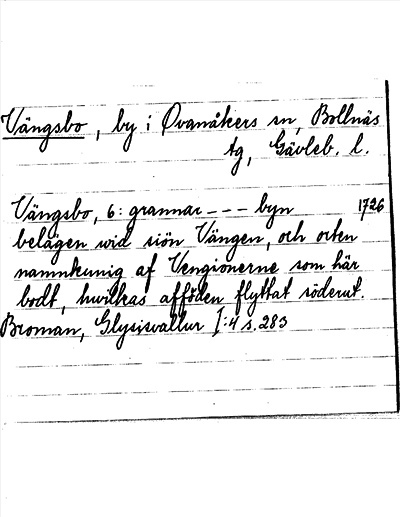 Vängsbo, by i Ovanåkers sn, Bollnäs
tg, Gävleb. l.
Vängsbo, 6: grannar - - - byn 1726
belägen wid siön Vängen, och orten
namnkunig af Vengionerne som här
bodt, hwilkas afföden flyttat söderut.
Broman, Glysisvallur I:4 s. 283